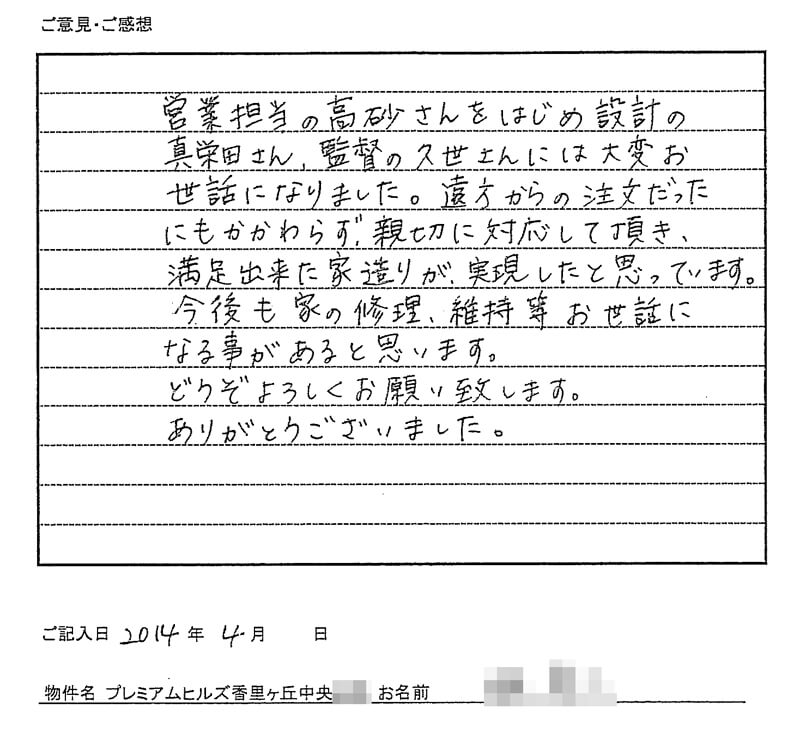 ご意見・ご感想
営業担当の高砂さんをはじめ設計の
真栄田さん、監督の久世さんには大変お
世話になりました。遠方からの注文だった
にもかかわらず、親切に対応して頂き、
満足出来た家造りが、実現したと思っています。
今後も家の修理、維持等お世話に
なる事があると思います。
どうぞよろしくお願い致します。
ありがとうございました。
ご記入日 2014 年 4 月 日
物件名 プレミアムヒルズ香里ヶ丘中央 お名前